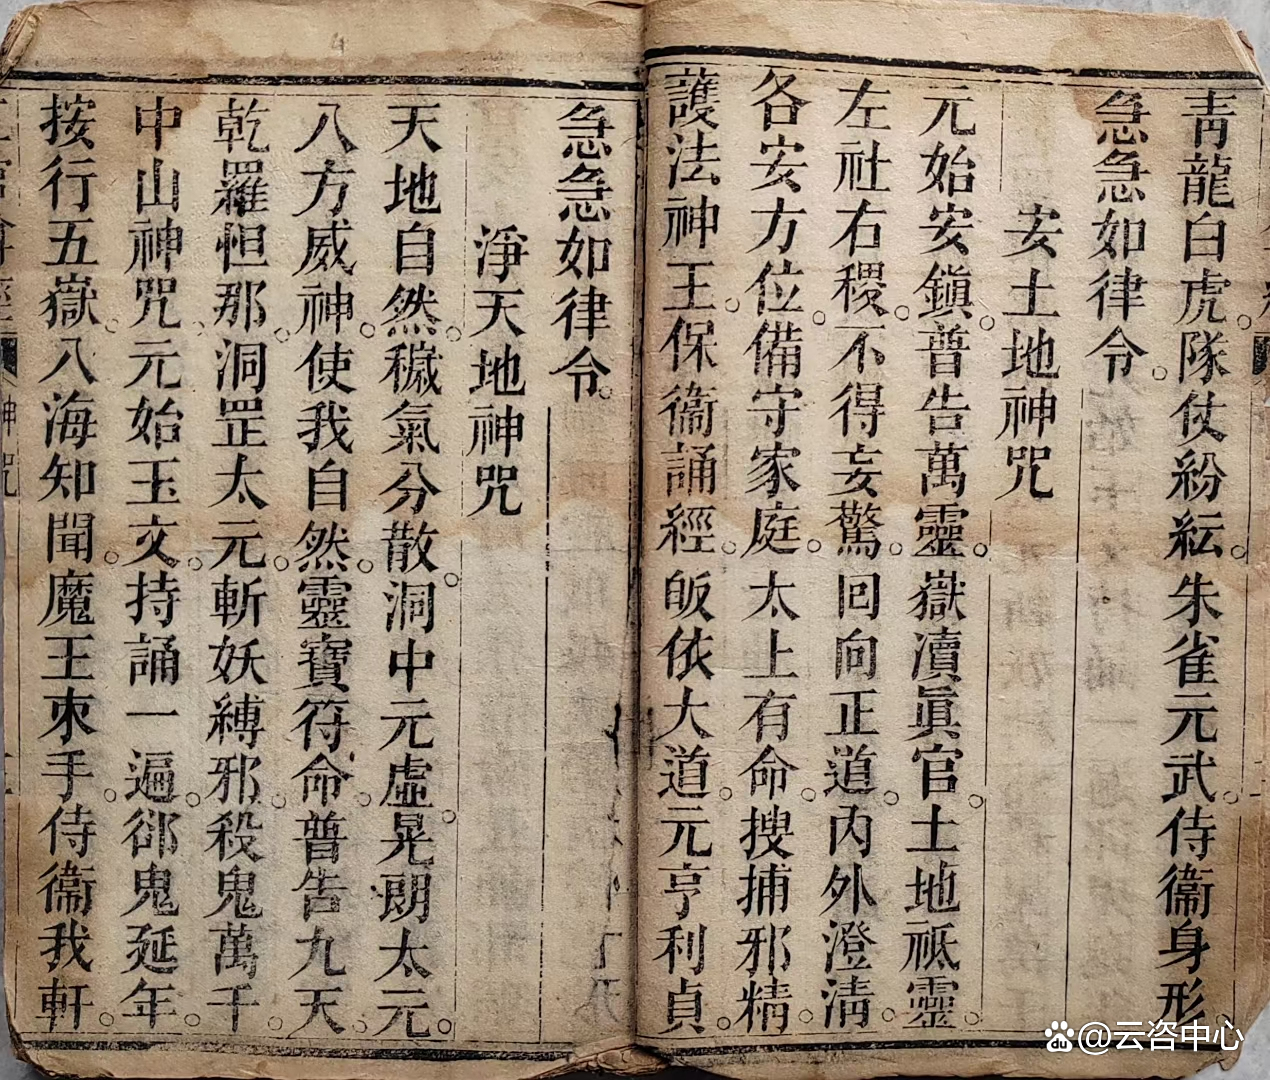 青龍白虎。隊仗紛紜。朱雀元武。侍衞身形。
急急如律令。
安土地神咒
元始安鎮。普告萬靈。嶽瀆眞官。土地祇靈。
左社右稷。不得妄驚。回向正道。內外澄清。
各安方位。備守家庭。太上有命。搜捕邪精。
護法神王。保衞誦經。皈依大道。元亨利貞。
急急如律令。
淨天地神咒
天地自然。穢氣分散。洞中元虛。晃朗太元。
八方威神。使我自然。靈寶符命。普告九天。
乾羅怛那。洞罡太元。斬妖縛邪。殺鬼萬千。
中山神咒。元始玉文。持誦一遍。郤鬼延年。
按行五嶽。八海知聞。魔王束手。侍衞我軒。
神咒
@云咨中心